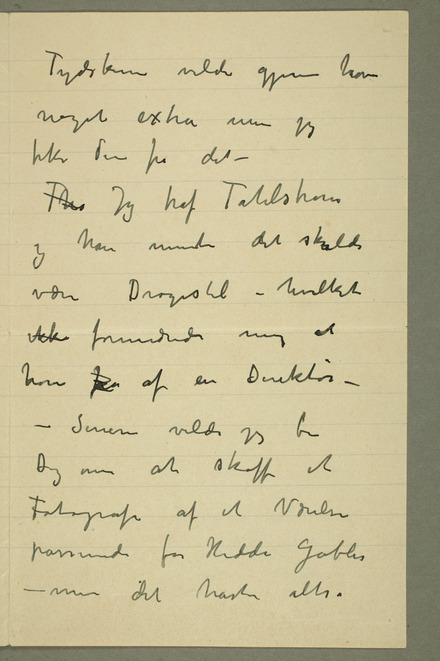 Tydskeren vilde gjerne have
noget extra men jeg
fik den fra det –
Jeg traf Tahlstrøm
og han mente det skulde
være Dragestil – hvilket
ikke forundrede mig at
høre af en Direktør –
– Senere vilde jeg be
Dig om at skaffe et
Fotografi af et Værelse
passende for Hedda Gabler
– men det haster ikke.